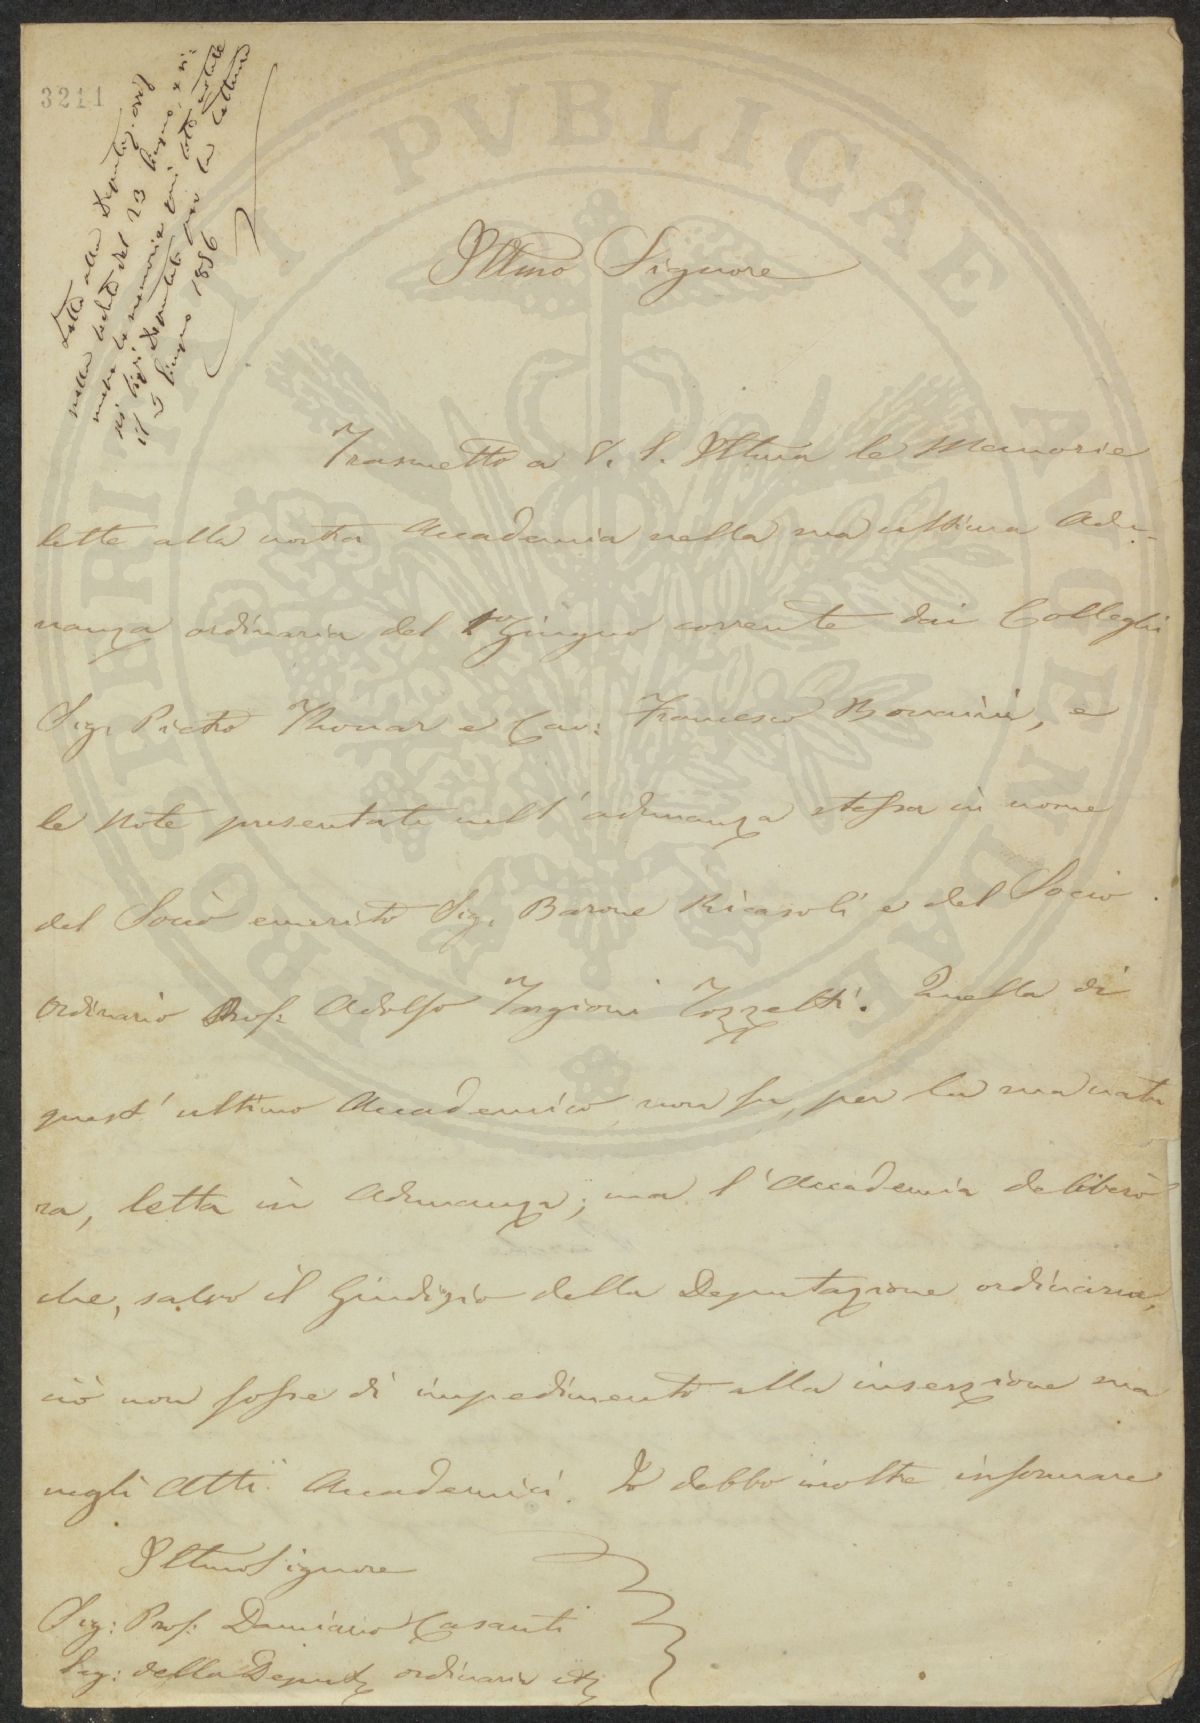 3211
Letta alla Deputaz. ord.
nella seduta del 23 Giugno, e ri-
messe le memorie
ai Sigg. Deputati per la lettura
il 5 Giugno 1856
Illmo Signore
Trasmetto a V. S. Illma le Memorie
lette alla nostra Accademia nella sua ultima Adu-
nanza ordinaria del 1o Giugno corrente dai Colleghi
Sig. Pietro Thouar e Cav: Francesco Bonaini, e
le Note presentate nell'adunanza stessa in nome
del Socio emerito Sig. Barone Ricasoli e del Socio
Ordinario Prof: Adolfo Targioni Tozzetti. Quella di
quest'ultimo Accademico, non fu, per la sua natu
ra, letta in Adunanza; ma l'Accademia deliberò
che, salvo il Giudizio della Deputazione ordinaria,
ciò non fosse di impedimento alla inserzione sua
negli Atti Accademici. Io debbo inoltre informare
Illmo Signore
Sig: Prof: Damiano Casanti
Seg: della Deputz ordinaria etc
PROSPERITATI PVBLICAE AVGENDAE